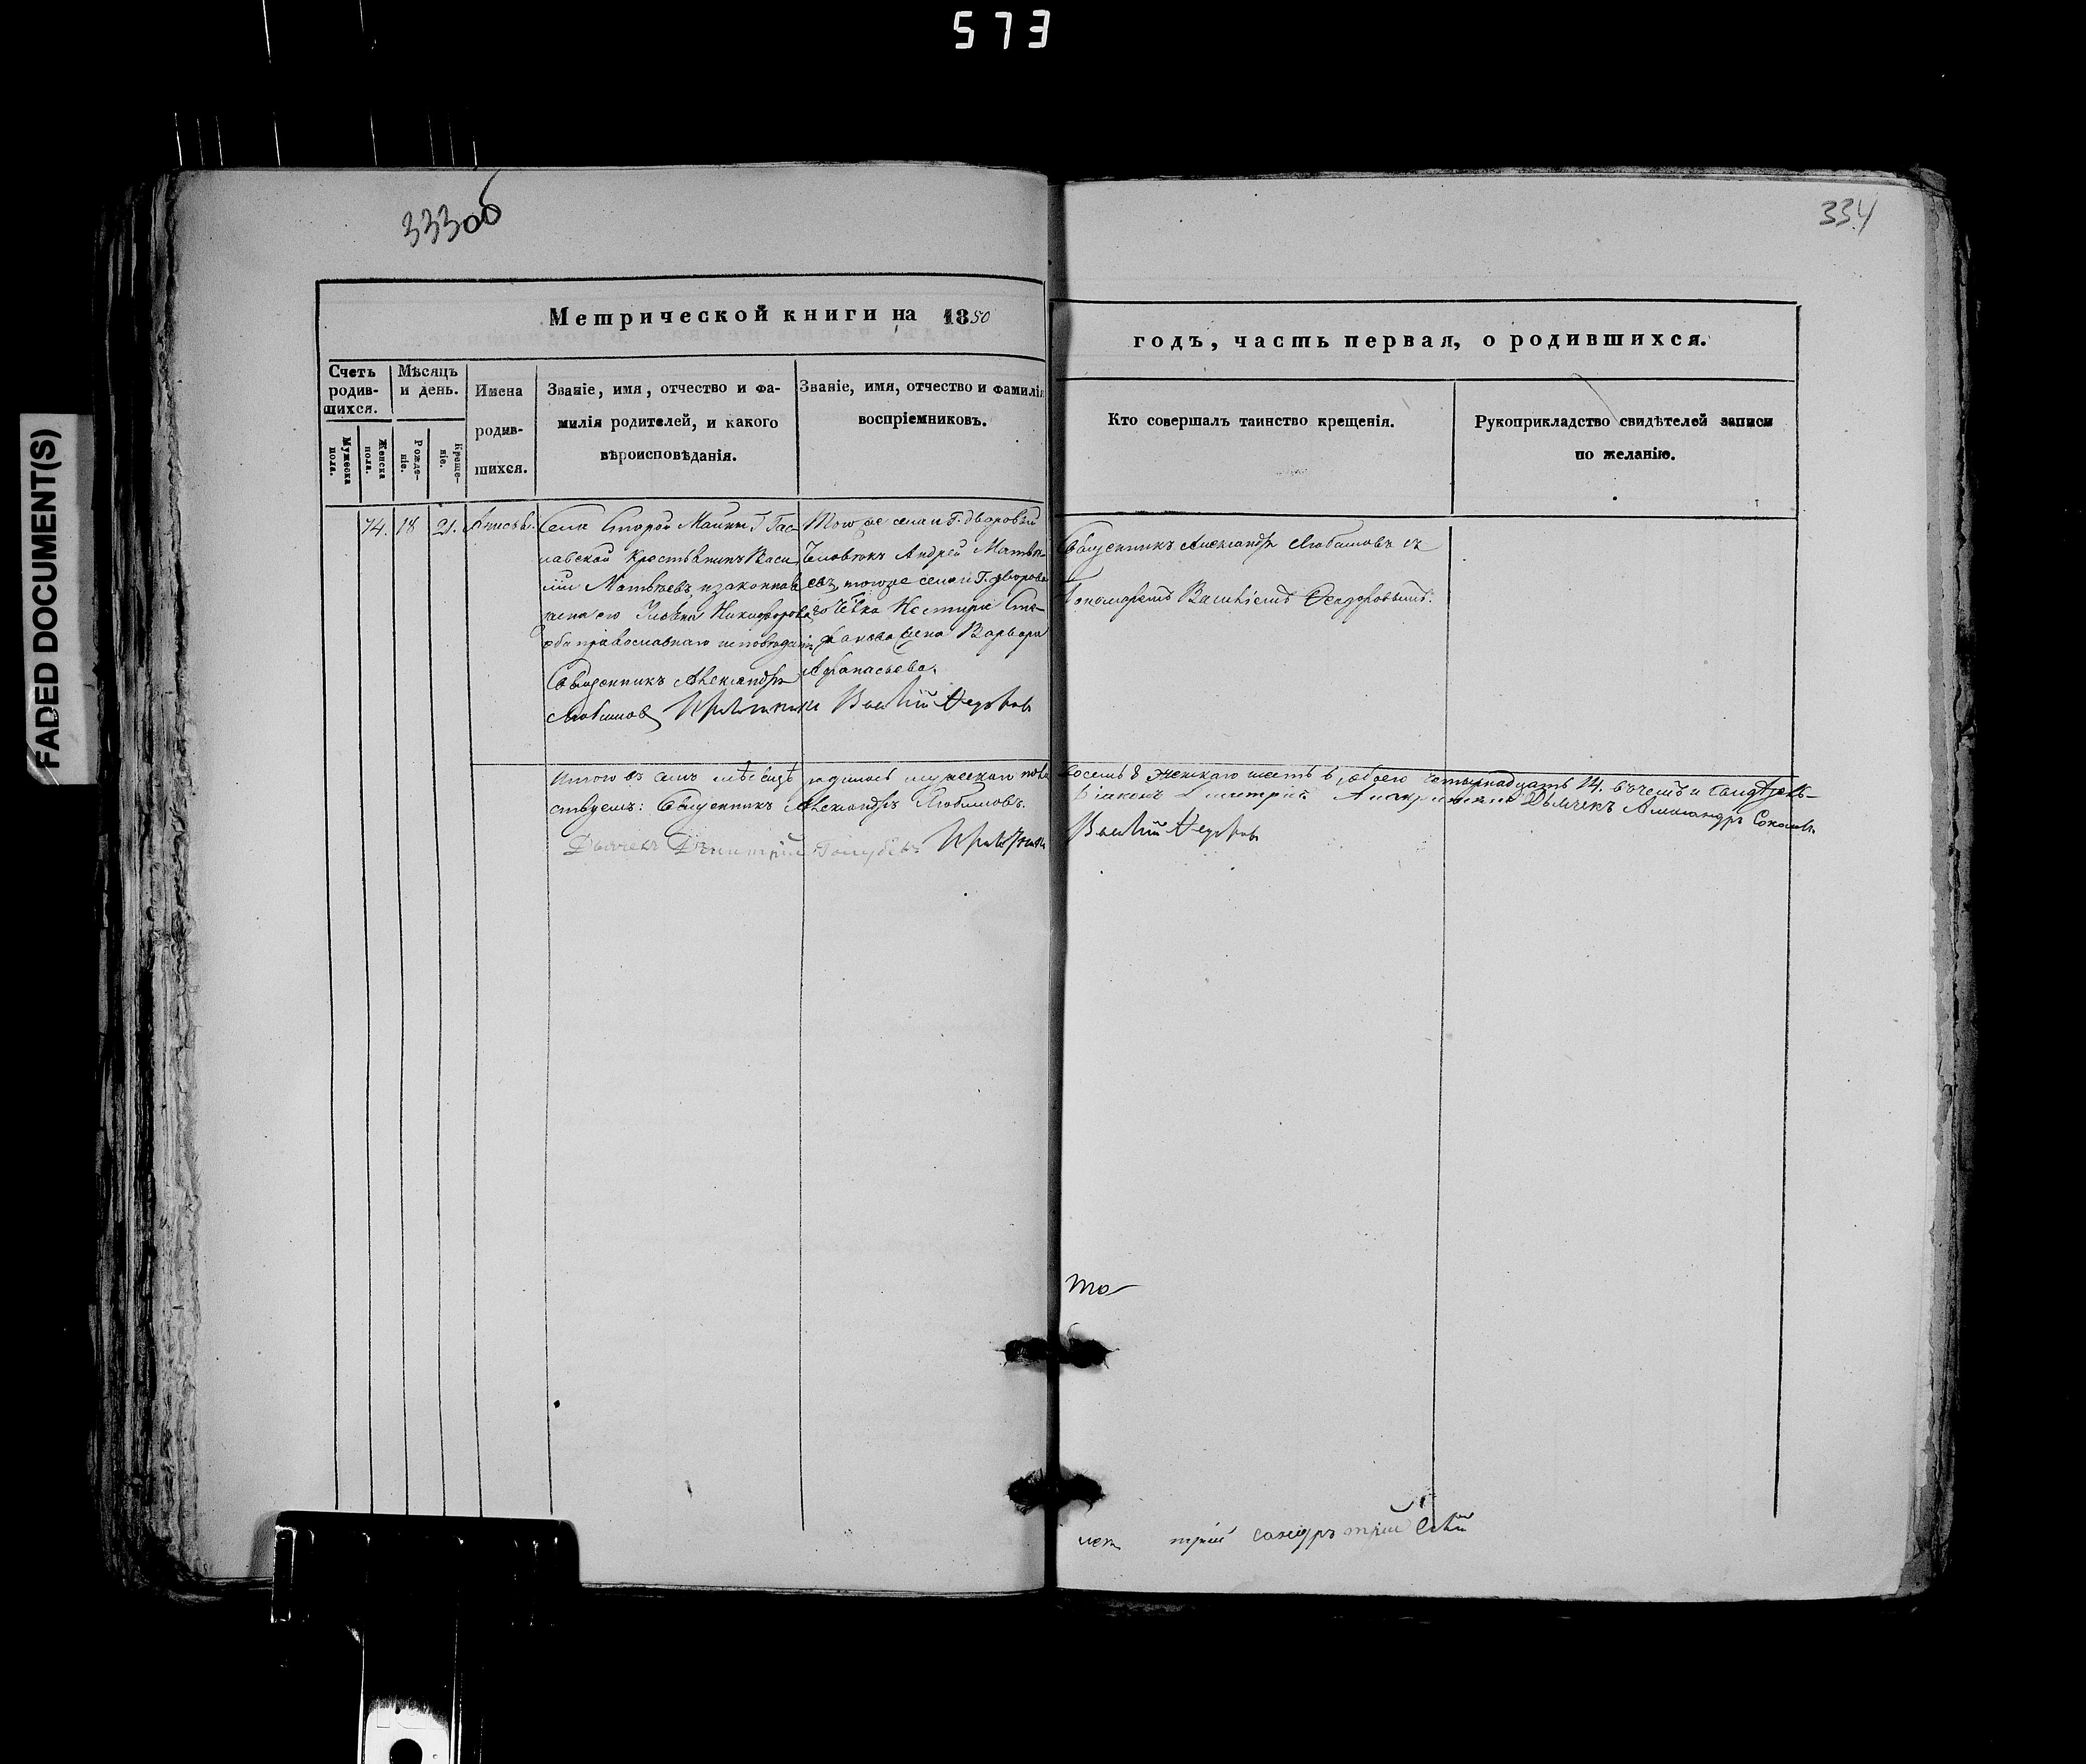 573
FADED DOCUMENT(S)
333об
334
Метрической книги на 1850
годъ, часть первая, о родившихся.
Счетъ родив-шихся.
Мужеска пола.
Женска пола.
Мѣсяцъ и день.
Рожде-ніе.
Креще-ніе.
Имена
родив-
шихся.
Званіе, имя, отчество и фа-
милія родителей, и какого
вѣроисповѣданія.
Званіе, имя, отчество и фамилія
воспріемниковъ.
Кто совершалъ таинство крещенія.
Рукоприкладство свидѣтелей записи
по желанію.
14. 18 21.
Села Второй
крестьянинъ Васи-
лій Матвѣевъ, и законная
жена его Никифорова
оба православнаго исповѣданія
Священникъ Александръ
Любимовъ
Того же села и Г. дворовый
человѣкъ Андрей Матвѣ-
евъ, того же села и Г. дворова-
го жена Варвара
Афанасьева.
Василій Федоровъ
Священникъ Александръ Любимовъ съ
Пономаремъ Василіемъ Феодоровымъ.
Итого въ семъ мѣсяцѣ родилось мужеска пола
восемь 8 женскаго шесть 6, обоего четырнадцать 14. въ чемъ и свидѣтель-
ствуемъ: Священникъ Александръ Любимовъ.
Діаконъ Димитрій Дьячекъ Александръ Соколовъ
Дьячекъ Димитрій Голубевъ
Василій Федоровъ
то
трій сандръ трій